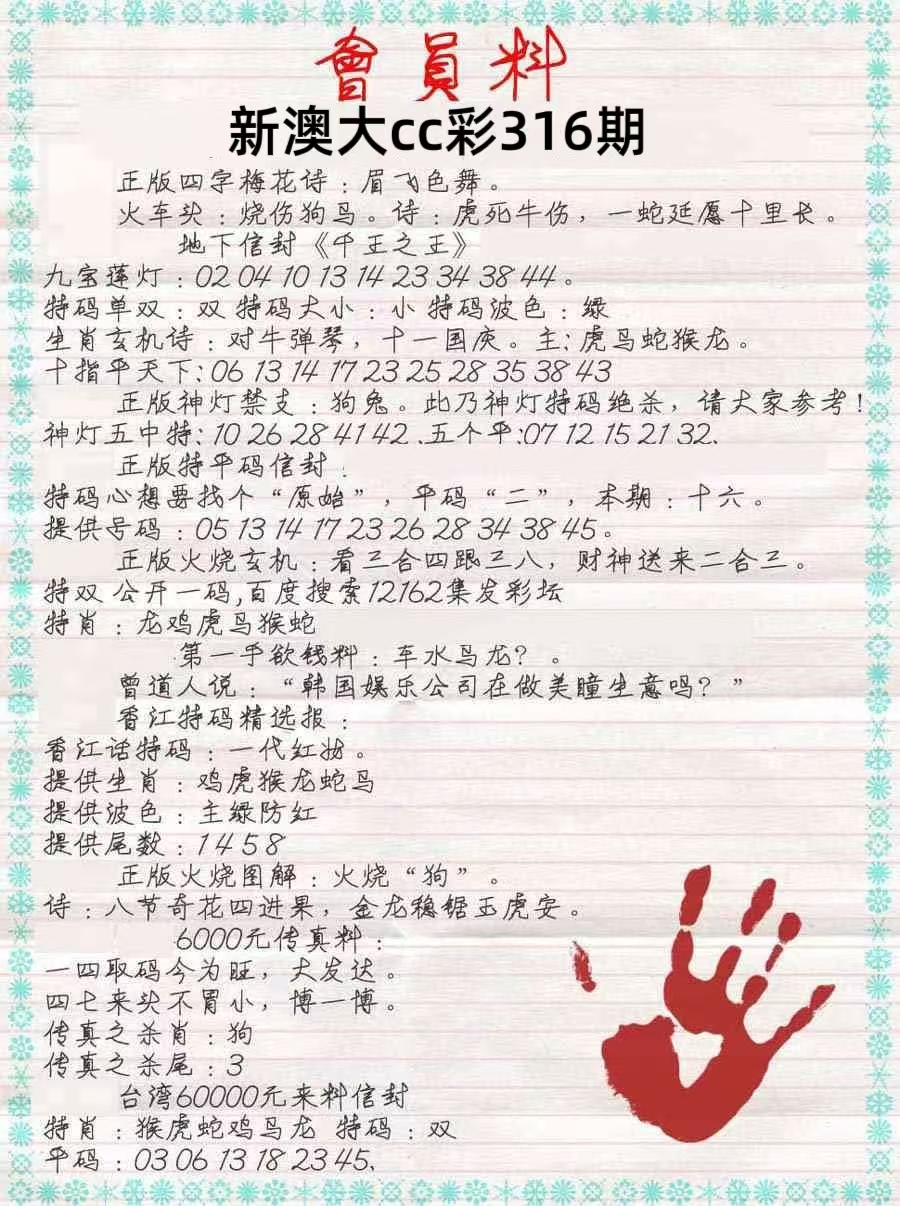 會員料
新澳大cc彩316期
正版四字梅花诗：眉飞色舞。
火车头：烧伤狗鸟。诗：虎死牛伤，一蛇延愿十里长。
地下信封《千王之王》
九宝莲灯：02 04 10 13 14 23 34 38 44。
特码单双：双 特码大小：小 特码波色：绿
生肖玄机诗：对牛弹琴，十一国庆。主：虎马蛇猴龙。
十指平天下：06 13 14 17 23 25 28 35 38 43
正版神灯禁支：狗兔。此乃神灯特码绝杀，请大家参考！
神灯五中特：10 26 28 41 42 .五个平：07 12 15 21 32.
正版特平码信封：
特码心想要找个“原始”，平码“二”，本期：十六。
提供号码：05 13 14 17 23 26 28 34 38 45。
正版火烧玄机：看三合四跟三八，财神送来二合三。
特双 公开一码,百度搜索12162集发彩坛
特肖：龙鸡虎马猴蛇
第一手欲钱料：车水马龙？。
曾道人说：“韩国娱乐公司在做美瞳生意吗？”
香江特码精选报：
香江话特码：一代红妆。
提供生肖：鸡虎猴龙蛇马
提供波色：主绿防红
提供尾数：1 4 5 8
正版火烧图解：火烧“狗”。
诗：八节奇花四进果，金龙稳锯玉虎安。
6000元传真料：
一四取码今为旺，大发达。
四七来头不冒小，博一博。
传真之杀肖：狗
传真之杀尾：3
台湾60000元来料信封
特肖：猴虎蛇鸡马龙 特码：双
平码：03 06 13 18 23 45.